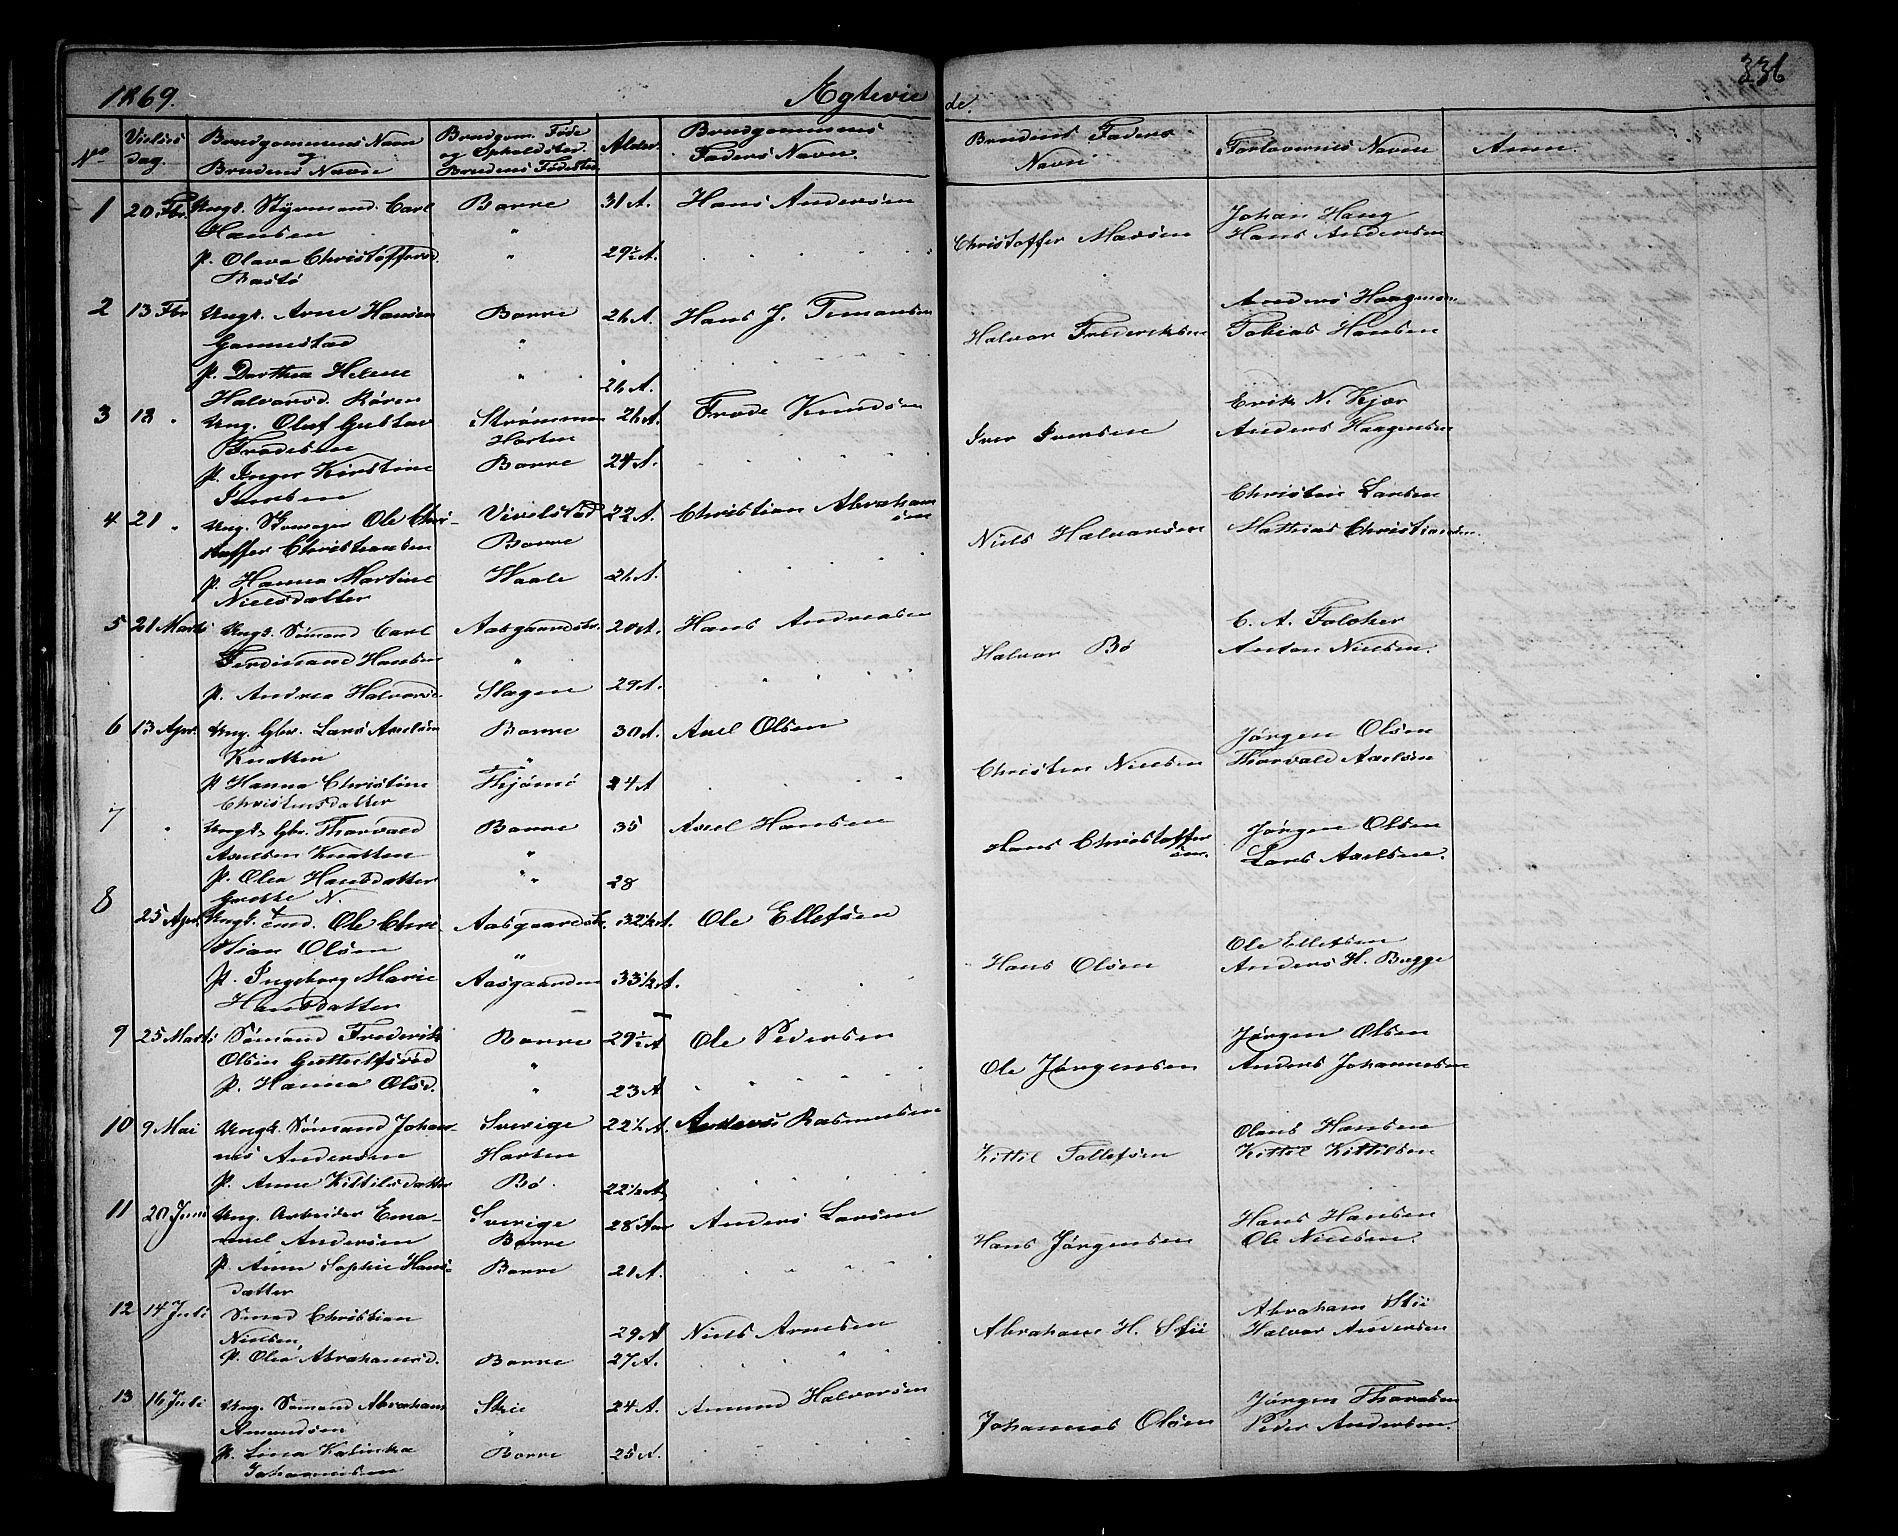 1869.
Egtevie
de.
336
No
Vielses dag.
Brudgommens Navn og Brudens Navn
Brudgom. Føde og Opholdsted Brudens Fødested
Alder
Brudgommens Faders Navn.
Brudens Faders Navn
Forlovernes Navne
Anm.
1 20 Fbr. Ungk. Styrmand Carl Borre 31 A. Hans Andersen Johan Haug
Hansen " Christoffer Hans Andersen
P. Olava Christoffersd. " 29½ A.
Bastø
2 13 Fbr Ungk. Arne Hansen Borre 26 A. Hans J. Anders Haagensen
Gannestad " Halvor Frederiksen Tobias Hansen
P. Dorthea Helene " 26 A.
Halvorsd. Røren
3 18 " Ung. Oluf Gustav Strømmen 26 A. Frode Knudsen Erik N. Kjær
Frodesen Horten Iver Iversen Anders Haagensen
P. Inger Kirstine Borre 24 A.
Iversen
4 21 " Ung. Ole Chri- 22 A. Christian Abraham Christen Larsen
stoffer Christiansen Borre sen Niels Halvorsen Mathias Christiansen
P. Hanna Martine Vaale 26 A.
Nielsdatter
5 21 Marts Ungk. Sømand Carl Aasgaardstr. 20 A. Hans Andreasen C. A. Falcher
Ferdinand Hansen " Halvor Bø Anton Nielsen.
P. Andrea Halvorsd. Slagen 29 A.
6 13 Apr. Ung. Gbr. Lars Axelsen Borre 30 A. Axel Olsen Jørgen Olsen
Knatten " Christen Nielsen Thorvald Axelsen
P Hanna Christine Tjømø 24 A
Christensdatter
7 " Ungk. Gbr. Thorvald Borre 35 Axel Hansen Jørgen Olsen
Axelsen Knatten " Hans Christoffer sen. Lars Axelsen.
P. Olea Hansdatter " " 28
N.
8 25 Apr. Ungk. Ole Chri Aasgaardstr. 32½ A. Ole Ellefsen Ole Ellefsen
stian Olsen " Hans Olsen Anders H. Bugge
P. Ingeborg Marie Aasgaarden 33½ A.
Hansdatter
9 25 Marts Sømand Frederik Borre 29½ A Ole Pedersen Jørgen Olsen
Olsen " Ole Jørgensen Anders Johannesen
P. Hanna Olsd. " 23 A
10 9 Mai Ungk. Sømand Johan- Sverige 22½ A. Anders Rasmussen Olaus Hansen
nes Andersen Horten Kittil Tollefsen Kittil Kittilsen
P. Anne Kittilsdatter Bø. 22½ A,
11 20 Juni Ung. Arbeider Ema- Sverige 28 Aar Anders Larsen Hans Hansen
nuel Andersen Borre Hans Jørgensen Ole Nielsen.
P. Anne Sophie Hans- Borre 21 A.
datter
12 14 Juli Smed Christian Abraham Stii
Nielsen 29 A Niels Arnesen Abraham H. Stii Halvor Andersen
P. Olea Abrahamsd. Borre 27 A.
13 16 Juli Ung. Sømand Abraham Skie 24 A. Amund Halvorsen Jørgen Thoresen
Amundsen " Johannes Olsen Peder Andersen.
P. Lina Kalinka Borre 25 A.
Johannesen